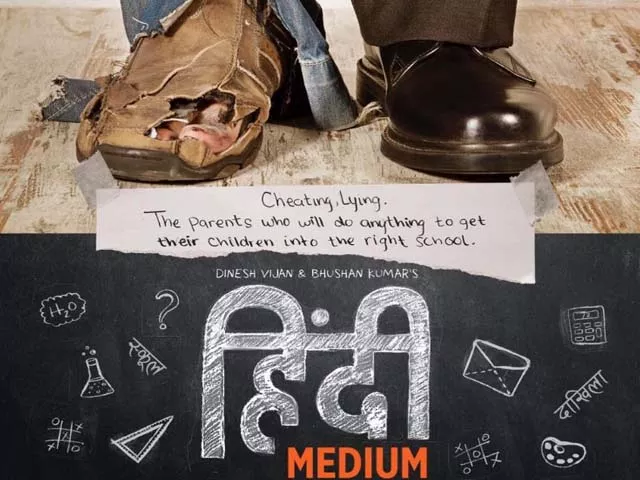 Cheating, Lying.
The Parents who will do anything to get
their children into the right school.
DINESH VIJAN & BHUSHAN KUMAR'S
H₂O
?
स्कूल
हिंदी
दाखिला
MEDIUM